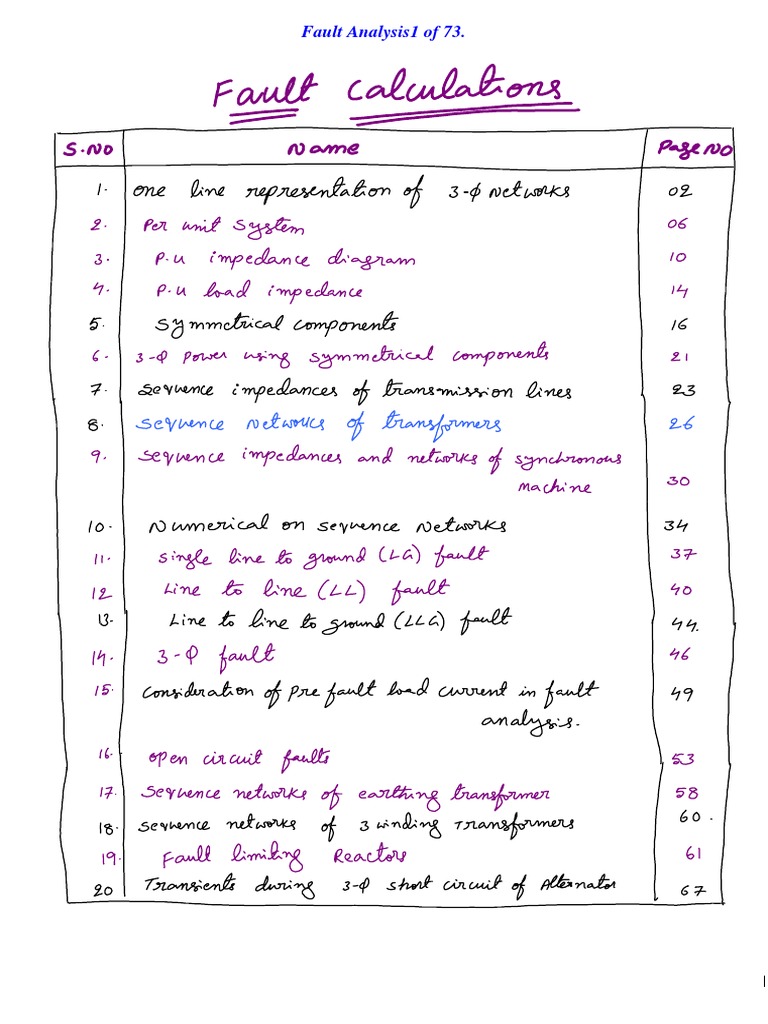 Fault Analysis1 of 73.
Fault Calculations
S.NO Name Page NO
1. One line representation of 3-Φ Networks 02
2. Per unit System 06
3. P.U impedance diagram 10
4. P.U load impedance 14
5. Symmetrical components 16
6. 3-Φ Power using symmetrical components 21
7. Sequence impedances of transmission lines 23
8. Sequence Networks of transformers 26
9. Sequence impedances and networks of synchronous
machine 30
10. Numerical on sequence Networks 34
11. Single line to ground (LG) fault 37
12 Line to line (LL) fault 40
13. Line to line to ground (LLG) fault 44.
14. 3-Φ fault 46
15. Consideration of Pre fault load current in fault 49
analysis.
16. Open circuit faults 53
17. Sequence networks of earthing transformer 58
18. Sequence networks of 3 winding Transformers 60.
19. Fault limiting Reactors 61
20 Transients during 3-Φ short circuit of Alternator 67